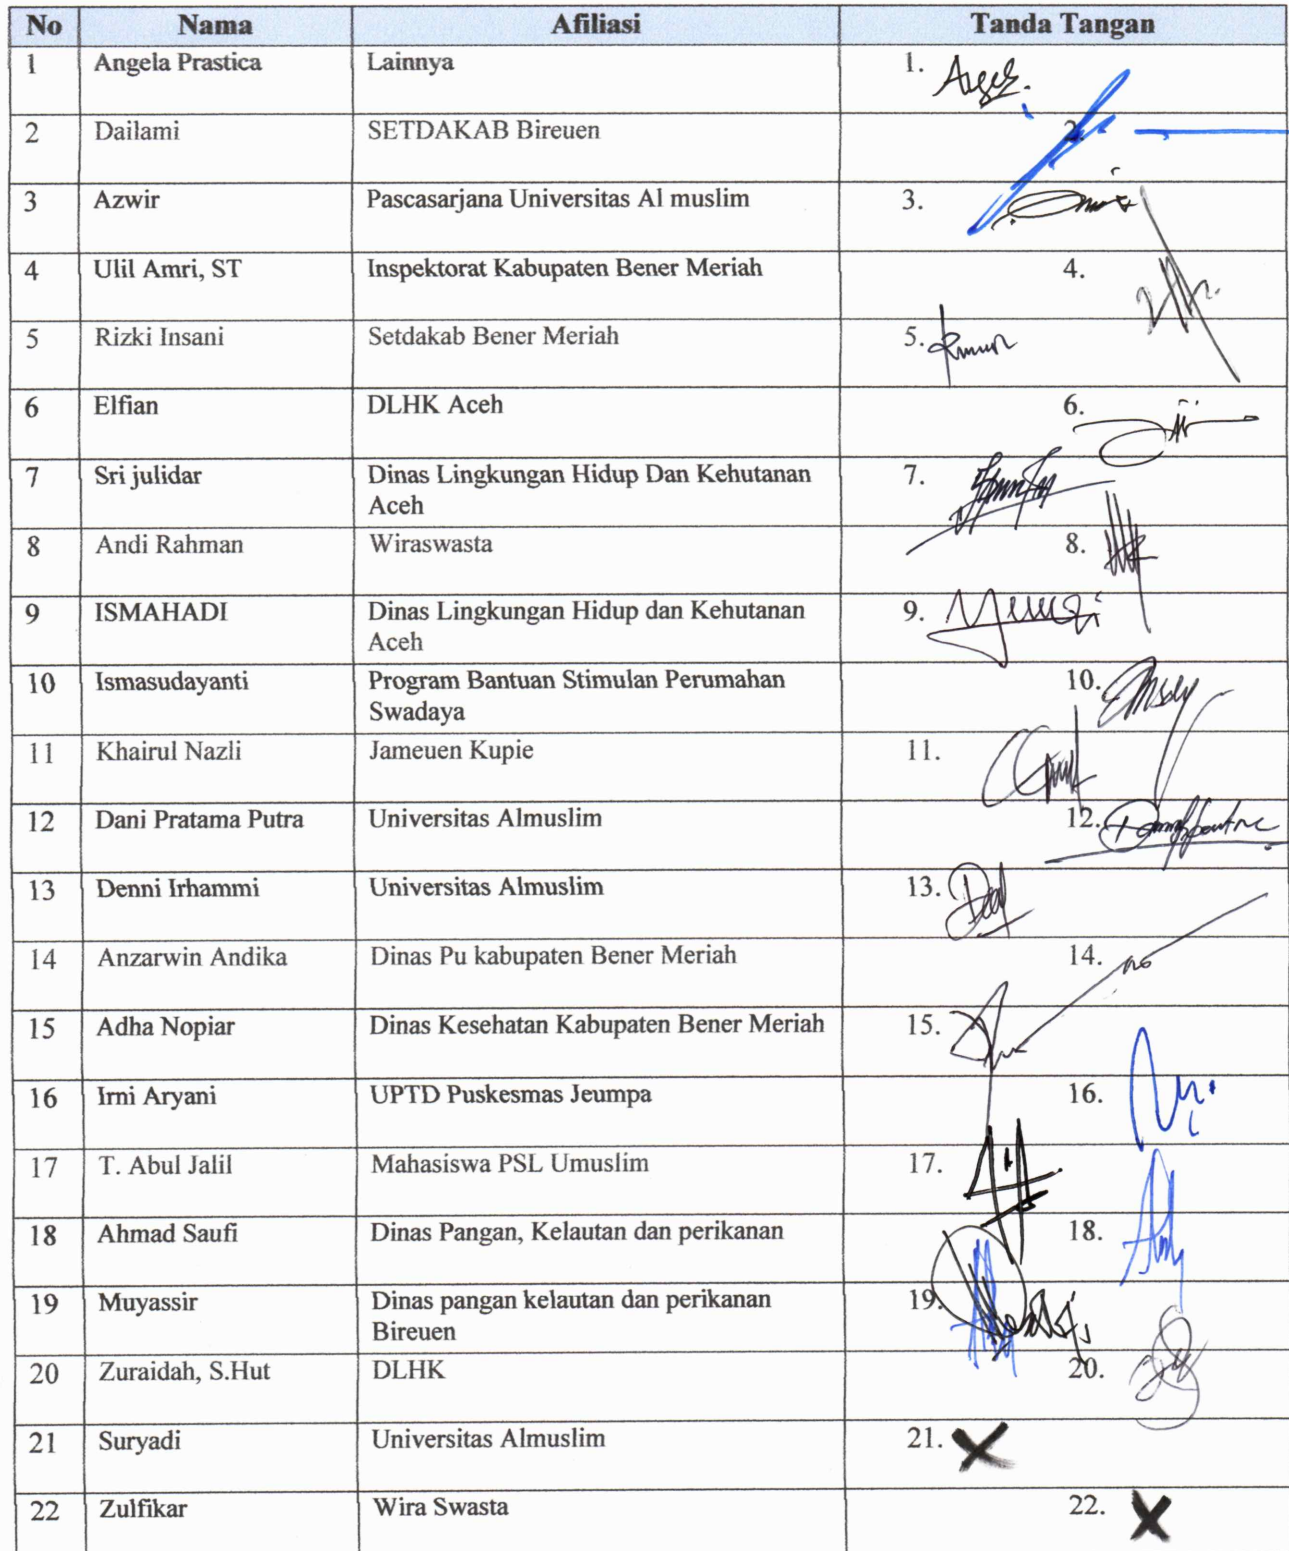 No Nama Afiliasi Tanda Tangan
1 Angela Prastica Lainnya 1.
2 Dailami SETDAKAB Bireuen 2.
3 Azwir Pascasarjana Universitas Al muslim 3.
4 Ulil Amri, ST Inspektorat Kabupaten Bener Meriah 4.
5 Rizki Insani Setdakab Bener Meriah 5.
6 Elfian DLHK Aceh 6.
7 Sri julidar Dinas Lingkungan Hidup Dan Kehutanan 7.
Aceh
8 Andi Rahman Wiraswasta 8.
9 ISMAHADI Dinas Lingkungan Hidup dan Kehutanan 9.
Aceh
10 Ismasudayanti Program Bantuan Stimulan Perumahan 10.
Swadaya
11 Khairul Nazli Jameuen Kupie 11.
12 Dani Pratama Putra Universitas Almuslim 12.
13 Denni Irhammi Universitas Almuslim 13.
14 Anzarwin Andika Dinas Pu kabupaten Bener Meriah 14.
15 Adha Nopiar Dinas Kesehatan Kabupaten Bener Meriah 15.
16 Irni Aryani UPTD Puskesmas Jeumpa 16.
17 T. Abul Jalil Mahasiswa PSL Umuslim 17.
18 Ahmad Saufi Dinas Pangan, Kelautan dan perikanan 18.
19 Muyassir Dinas pangan kelautan dan perikanan 19.
Bireuen
20 Zuraidah, S.Hut DLHK 20.
21 Suryadi Universitas Almuslim 21.
22 Zulfikar Wira Swasta 22.